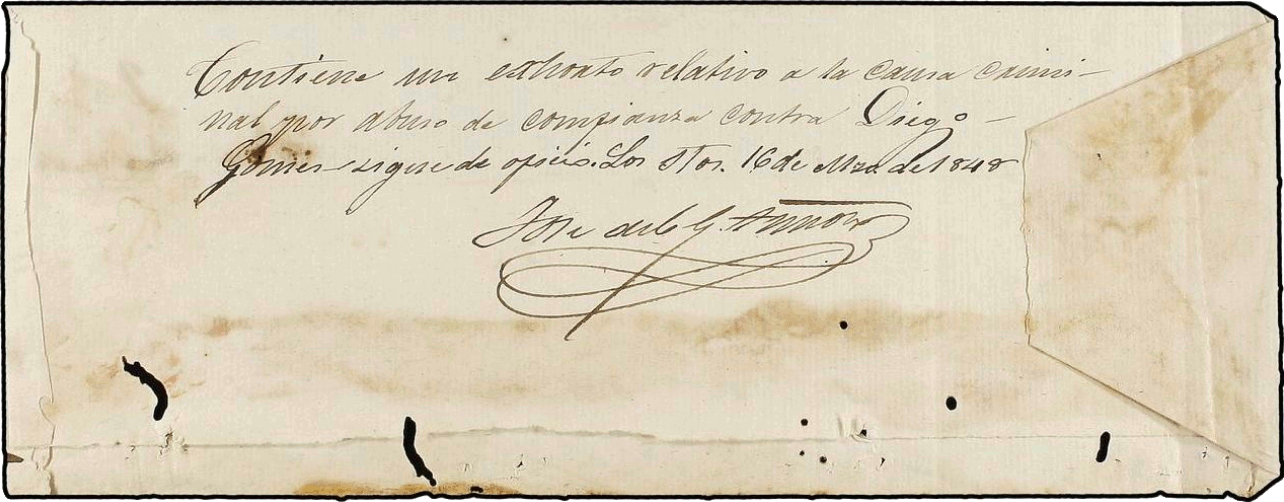 Contiene un exhorto relativo a la causa crimi-
nal por abuso de confianza contra Diego -
Gomes - sigue de oficio. Los Stos. 16 de Mzo. de 1848
Jose de la G.